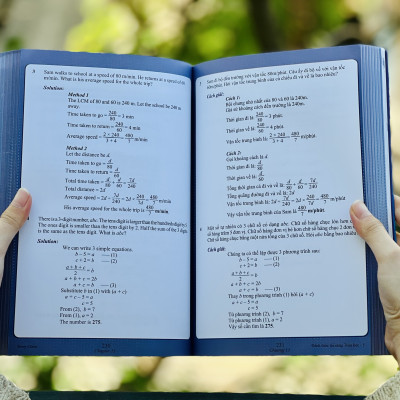 3 Sam walks to school at a speed of 80 m/min. He returns at a speed of 60
m/min. What is his average speed for the whole trip?
Solution:
Method 1
The LCM of 80 and 60 is 240 m. Let the school be 240 m
away.
Time taken to go = 240/80 = 3 min
Time taken to return = 240/60 = 4 min
Average speed = 2 × 240/3 + 4 = 480/7 m/min
Method 2
Let the distance be d.
Time taken to go = d/80
Time taken to return = d/60
Total time taken = d/80 + d/60 = 7d/240
Total distance = 2d
Average speed = 2d ÷ 7d/240 = 2d × 240/7d = 480/7 m/min
His average speed for the whole trip is 480/7 m/min.
There is a 3-digit number, abc. The tens digit is larger than the hundreds digit by 5.
The ones digit is smaller than the tens digit by 2. Half the sum of the 3 digits
is the same as the tens digit. What is abc?
Solution:
We can write 3 simple equations.
b − 5 = a —— (1)
c + 2 = b —— (2)
a + b + c/2 = b
a + b + c = 2b
a + c = b —— (3)
Substitute b in (1) with (a + c)
a + c − 5 = a
c = 5
From (2), b = 7
From (1), a = 2
The number is 275.
Cách giải:
Cách 1:
Bội chung nhỏ nhất của 80 và 60 là 240m.
Giả sử khoảng cách đến trường là 240m.
Thời gian đi là: 240/80 = 3 phút
Thời gian về là: 240/60 = 4 phút
Vận tốc trung bình là: 2 × 240/3 + 4 = 480/7 m/phút.
Cách 2:
Gọi khoảng cách là d
Thời gian đi là: d/80
Thời gian về là: d/60
Tổng thời gian cả đi và về là: d/80 + d/60 = 7d/240
Tổng quãng đường đi và về là: 2d
Vận tốc trung bình là: 2d ÷ 7d/240 = 2d × 240/7d = 480/7 m/phút
Vậy vận tốc trung bình của Sam là 480/7 m/phút.
Cách giải:
Chúng ta có thể lập được 3 phương trình sau:
b − 5 = a —— (1)
c + 2 = b —— (2)
a + b + c/2 = b
a + b + c = 2b
a + c = b —— (3)
Thay b trong phương trình (1) bởi (a + c)
a + c − 5 = a
c = 5
Từ phương trình (2), b = 7
Từ phương trình (1), a = 2
Vậy số cần tìm là 275.